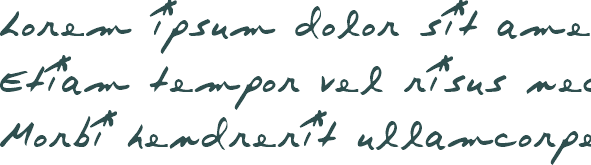 Lorem ipsum dolor sit ame
Etiam tempor vel risus nec
Morbi hendrerit ullamcorpe